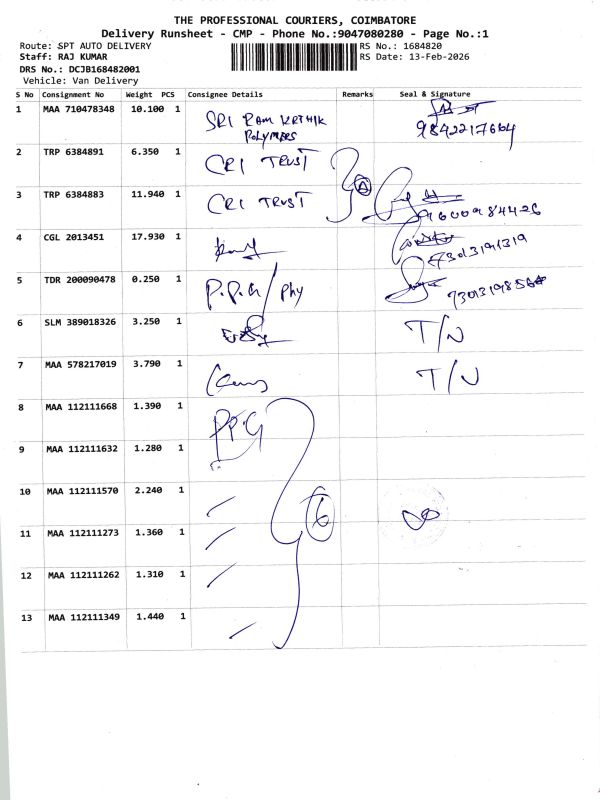 THE PROFESSIONAL COURIERS, COIMBATORE
Delivery Runsheet - CMP - Phone No.:9047080280 - Page No.:1
Route: SPT AUTO DELIVERY RS No.: 1684820
Staff: RAJ KUMAR RS Date: 13-Feb-2026
DRS No.: DCJB168482001
Vehicle: Van Delivery
S No Consignment No Weight PCS Consignee Details Remarks Seal & Signature
1 MAA 710478348 10.100 1 SRI RAM KRTHIK 9842217664
POLYMERS
2 TRP 6384891 6.350 1 CRI TRUST
3 TRP 6384883 11.940 1 CRI TRUST 9600984426
4 CGL 2013451 17.930 1 73013191319
5 TDR 200090478 0.250 1 P.P.G / Phy
6 SLM 389018326 3.250 1 T/N
7 MAA 578217019 3.790 1 T/N
8 MAA 112111668 1.390 1 PPG
9 MAA 112111632 1.280 1
10 MAA 112111570 2.240 1 6
11 MAA 112111273 1.360 1
12 MAA 112111262 1.310 1
13 MAA 112111349 1.440 1